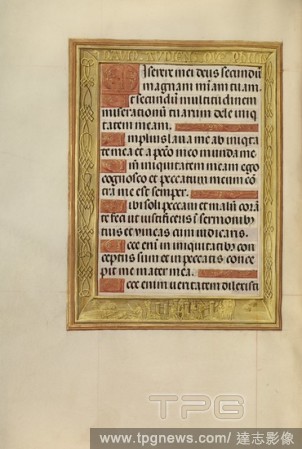 Miserere mei deus secundū
magnam m̄iam tuam.
Et secundū multitudinem
miserationū tuarum dele iniqͥ
tatem meam.
Amplius laua me ab iniqͥta
te mea et a pctō meo munda me
Qm̄ iniquitatem meam ego
cognosco et peccatum meum cō
tra me est semper.
Tibi soli peccaui et malū corā
te feci ut iustificeris ī sermonibꝰ
tuis et vincas cum iudicaris.
Ecce enī in iniquitatibꝰ con
ceptus sum et in peccatis conce
pit me mater mea.
Ecce enim ueritatem dilexisti
TPG
www.tpgnews.com/達志影像